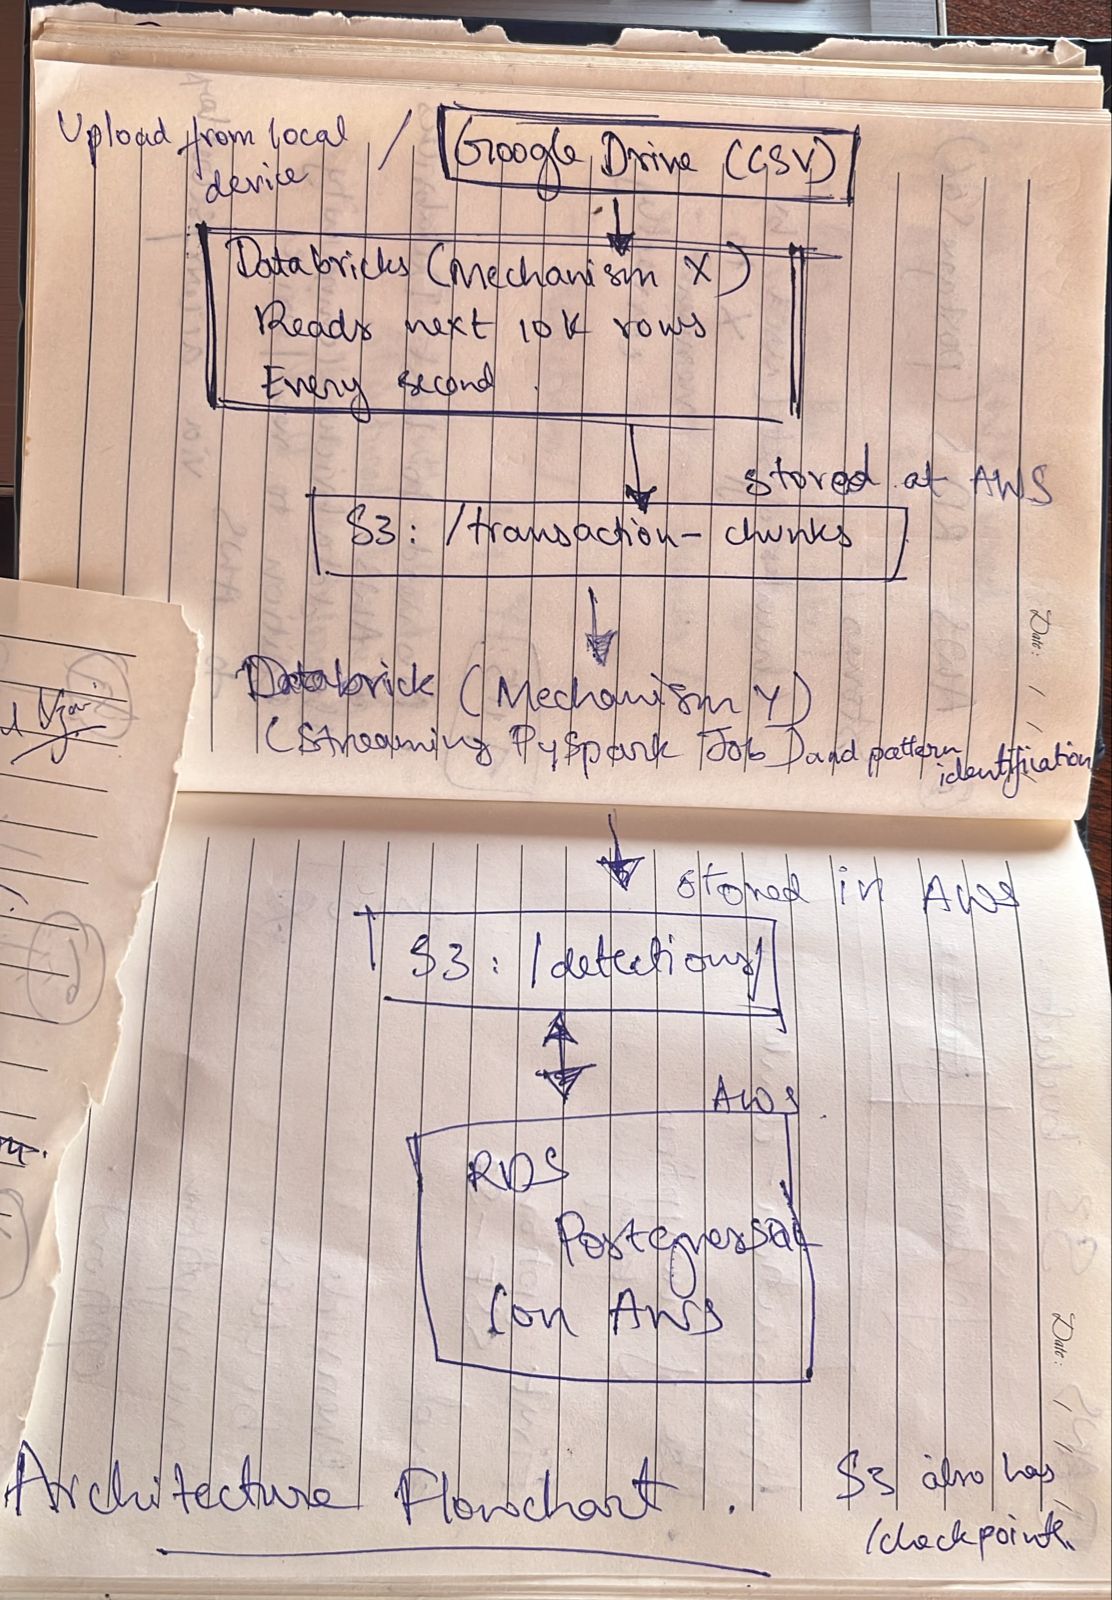 Upload from local / Google Drive (CSV)
device
Databricks (Mechanism X)
Reads next 10K rows
Every second.
stored at AWS
S3: /transaction-chunks
Databrick (Mechanism Y)
(Streaming PySpark Job) and pattern
identification
Date:
stored in AWS
S3: /detections/
AWS
RDS
PostgresSQL
(on AWS
Date:
Architecture Flowchart.
S3 also has
/checkpoints.